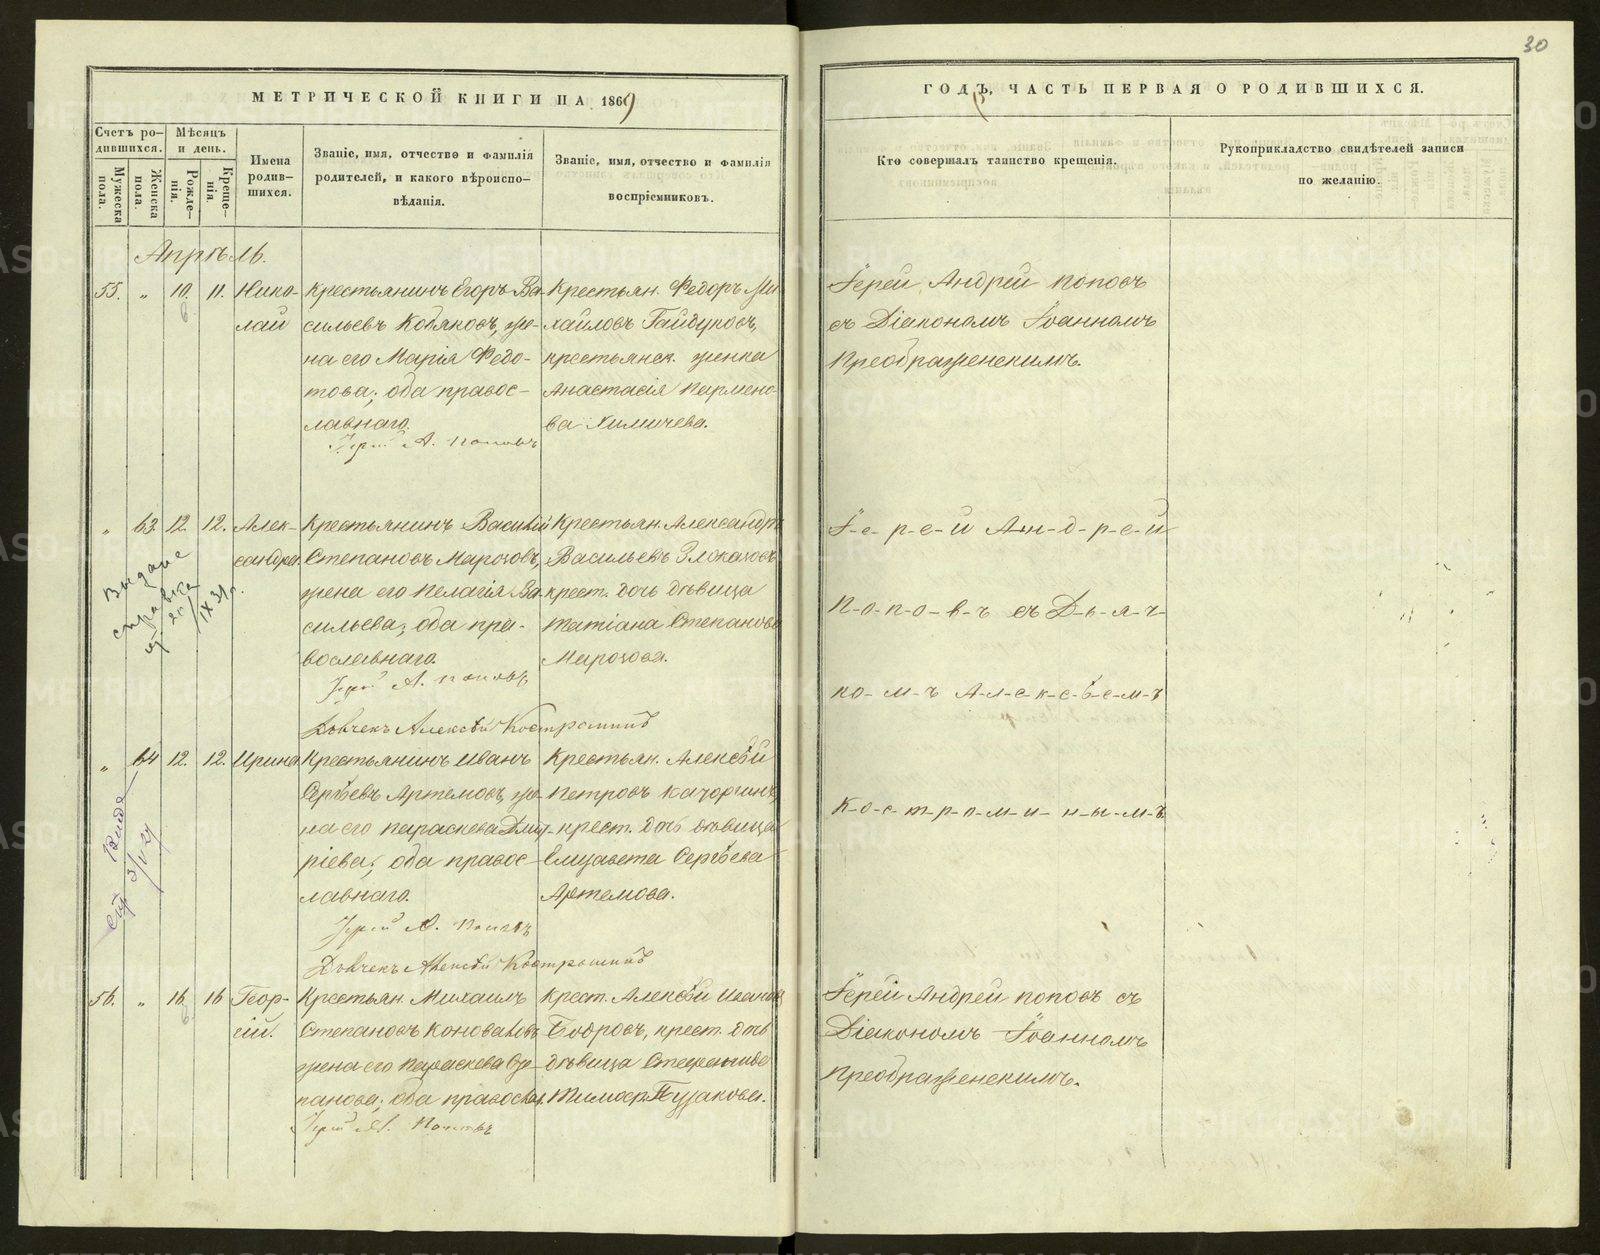 30
МЕТРИЧЕСКОЙ КНИГИ НА 1869
ГОДЪ, ЧАСТЬ ПЕРВАЯ О РОДИВШИХСЯ.
Счетъ ро-
дившихся.
Мужеска
пола.
Женска
пола.
Мѣсяцъ
и день.
Рожде-
нія.
Креще-
нія.
Имена
родив-
шихся.
Званіе, имя, отчество и фамилія
родителей, и какого вѣроиспо-
вѣданія.
Званіе, имя, отчество и фамилія
воспріемниковъ.
Кто совершалъ таинство крещенія.
Рукоприкладство свидѣтелей записи
по желанію.
Апрѣль.
55. " 10. 11. Нико-
лай
Крестьянинъ Егоръ Ва-
сильевъ Кобяковъ, же-
на его Марія Федо-
това; оба правос-
лавнаго.
Іерей А. Поповъ
Крестьян. Федоръ Ми
хайловъ Гайдуковъ,
крестьянск. женка
Анастасія Пармено-
ва Химичева.
Іерей Андрей Поповъ
съ Діакономъ Іоанномъ
Преображенскимъ.
" 63. 12. 12. Алек-
сандра.
Крестьянинъ Василій
Степановъ Марозовъ,
жена его Пелагія Ва-
сильева; оба пра-
вославнаго.
Іерей А. Поповъ
Дьячекъ Алексѣй Костроминъ
Крестьян. Александръ
Васильевъ Злоказовъ
крест. дочь дѣвица
Татіана Степанова
Марозова.
І-е-р-е-й А-н-д-р-е-й
П-о-п-о-в-ъ съ Д-ь-я-ч-
ко-м-ъ А-л-е-к-с-ѣ-е-м-ъ
К-о-с-т-р-о-м-и-н-ы-м-ъ
Выдана
справка
IX 31 г.
" 64 12. 12. Ирина
Крестьянинъ Иванъ
Сергѣевъ Артемовъ, же-
на его Параскева Дмит-
ріева; оба правос-
лавнаго.
Іерей А. Поповъ
Дьячекъ Алексѣй Костроминъ
Крестьян. Алексѣй
Петровъ Качоргинъ,
крест. дочь дѣвица
Елизавета Сергѣева
Артемова.
3/V 24
56. " 16. 16 Геор-
гій.
Крестьян. Михаилъ
Степановъ Коноваловъ
жена его Параскева Сте-
панова; оба православ.
Іерей А. Поповъ
Крест. Алексѣй Ивановъ
Бобровъ, крест. дочь
дѣвица Стефанида
Тимоф. Пузакова.
Іерей Андрей Поповъ съ
Діакономъ Іоанномъ
Преображенскимъ.